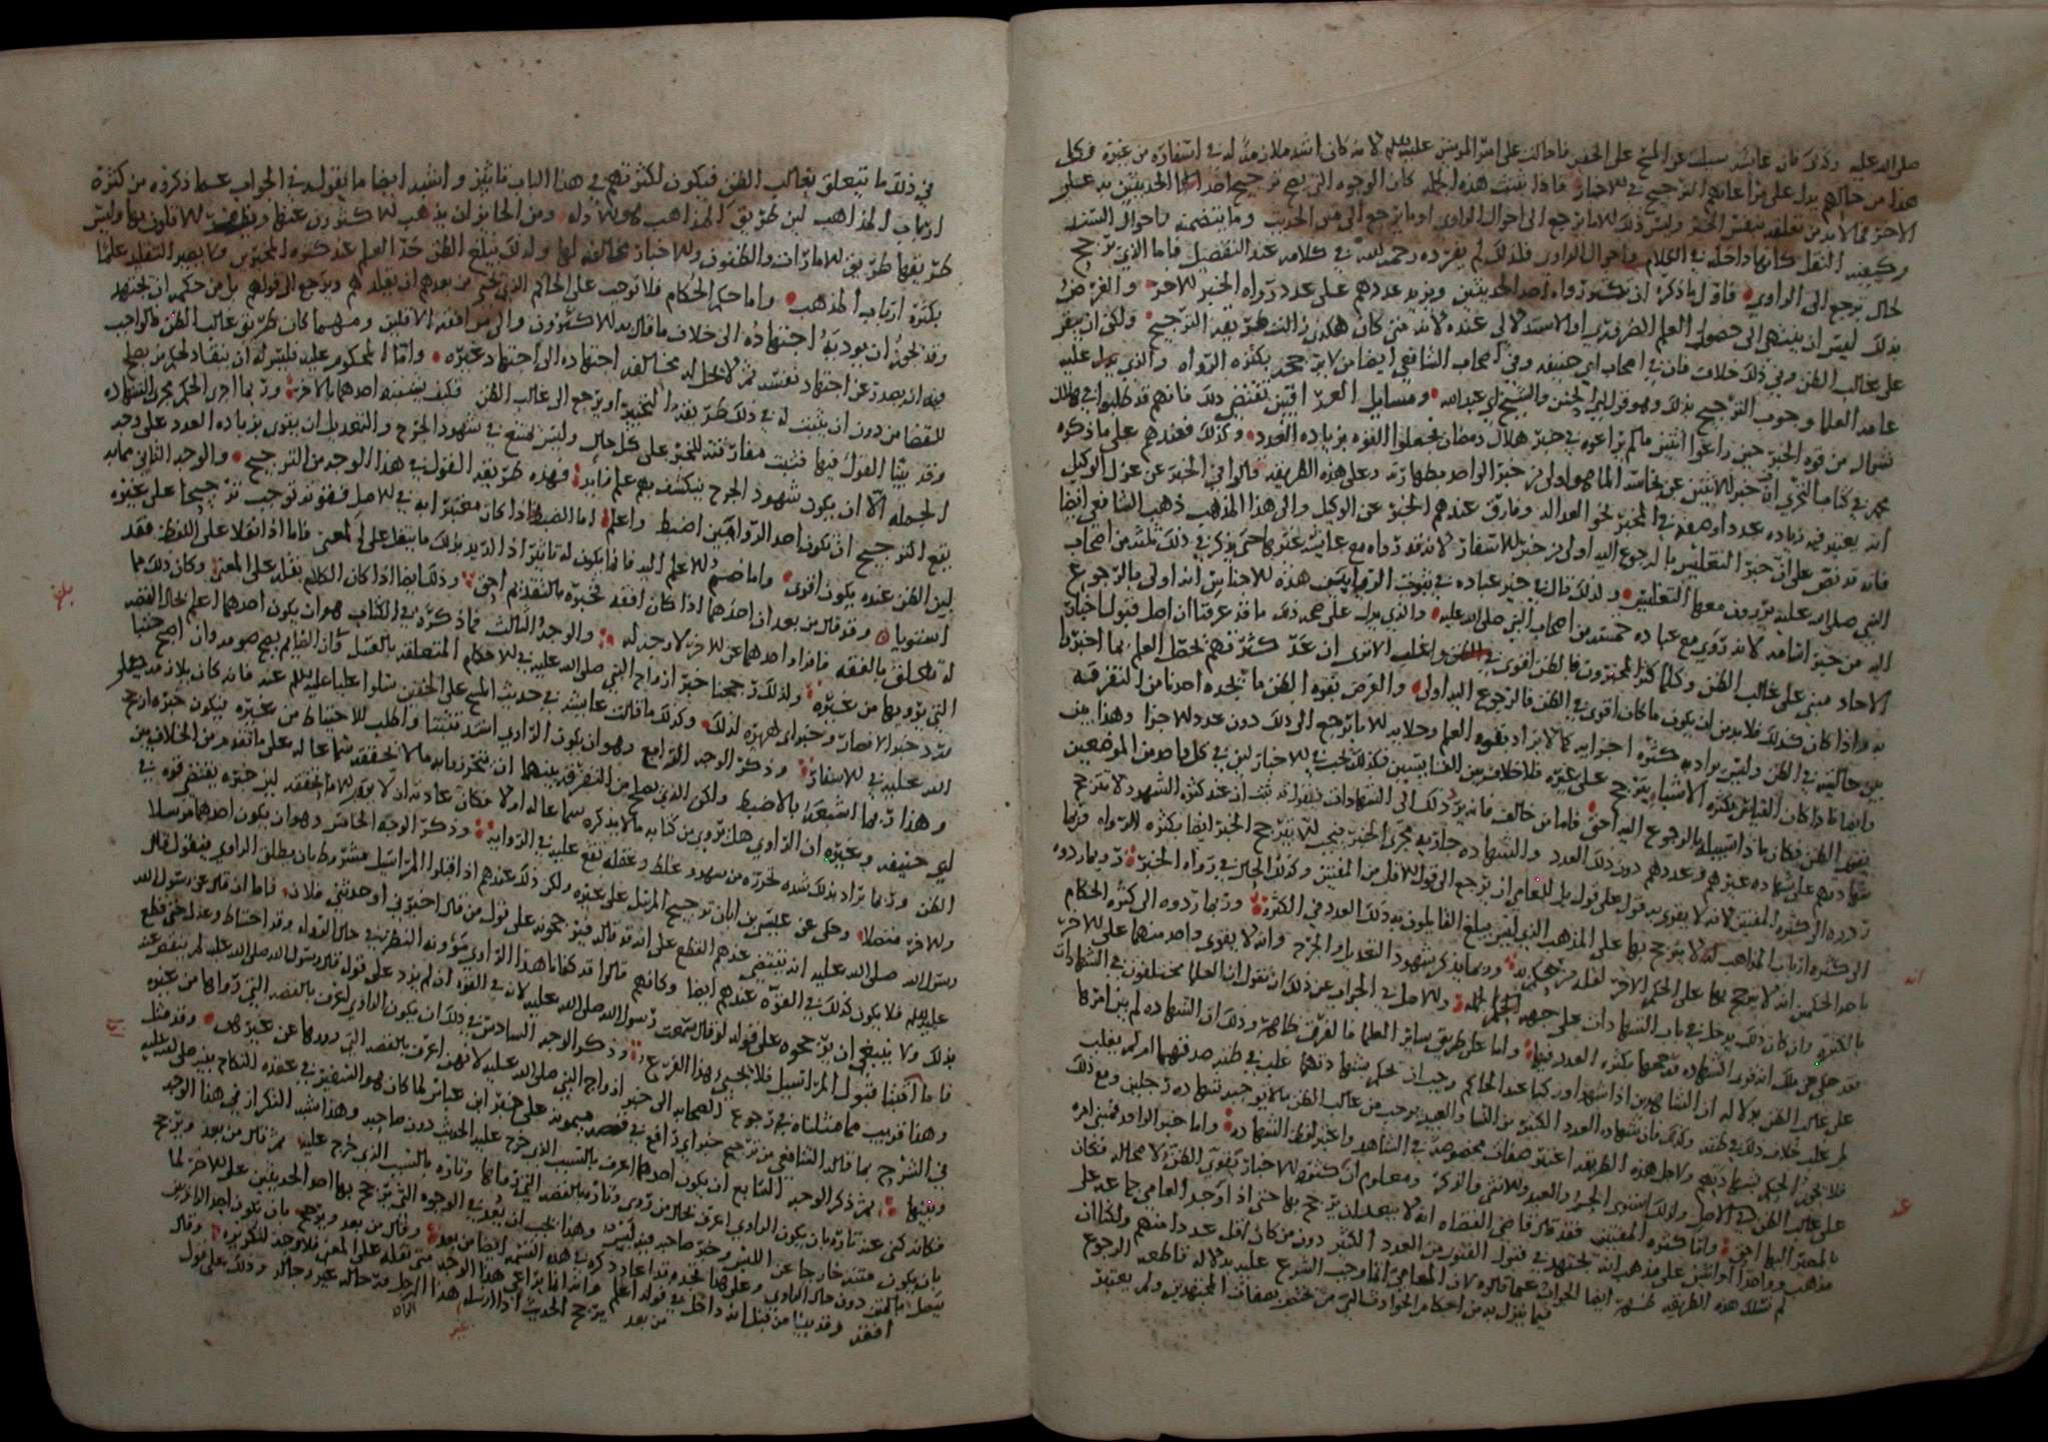 صلى الله عليه وكذلك فان عائشة سيلت عن المسح على الخفين فاحالت على امير المومنين عليه السلم لانه كان اشد ملازمة له في اسفاره من غيره وكل
هذا من حالهم يدل على مراعاتهم الترجيح في الاخبار فاذا ثبتت هذه الجملة كان الوجوه التي يصح ترجيح احد الحديثين به على
الاخر مما لا بد من تعلقه بنفس الخبر وليس ذلك الا ما يرجع الى احوال الراوي او ما يرجع الى متن الحديث وما يتضمنه فاحوال السند
وكيفية النقل كانها داخلة في الكلام في احوال الراوي فلذلك لم يفرده رحمه الله في كلامه عند التفصيل فاما الذي يرجح
لحال يرجع الى الراوي فاول ما ذكره ان تكثر رواة احد الحديثين ويزيد عددهم على عدد رواة الخبر الاخر والغرض
بذلك ليس ان ينتهى الى حصول العلم الضروري او الاستدلالي عنده لانه متى كان هكذى زالت طريقة الترجيح ولكن ان يقر
على غالب الظن وفي ذلك خلاف فان في اصحاب ابي حنيفة وفي اصحاب الشافعي ايضا من لا يرجح بكثرة الرواة والذي عليه
عامة العلما وجوب الترجيح بذلك وهو قول ابي الحسن والشيخ ابي عبد الله ومسايل العراقيين تقتضي ذلك فانهم قد طلبوا في هلال
شوال من قوة الخبر حين راعوا اثنين ما لم يراعوه في خبر هلال رمضان فجعلوا القوة بزيادة العدد وكذلك فعندهم على ما ذكره
محمد في كتاب التحري ان خبر الاثنين عن نجاسة الما هو اولى من خبر الواحد بطهارته وعلى هذه الطريقة قالوا في الخبر عن عزل الوكيل
انه يعتبر فيه زيادة عدد او صفة في المخبر نحو العدالة وفارق عندهم الخبر عن الوكيل والى هذا المذهب ذهب الشافعي ايضا
فانه قد نص على ان خبر التغليس بالرجوع اليه اولى من خبر الاسفار لانه قد رواه مع عائشة غيرها حتى يذكر في ذلك ثلثة من اصحاب
النبي صلى الله عليه يروون معها التغليس ولذلك قال في خبر عبادة في ثبوت الربا في هذه الاجناس انه اولى بالرجوع
اليه من خبر اسامة لانه روى مع عبادة خمسة من اصحاب النبي صلى الله عليه والذي يدل على صحة ذلك ما قد عرفنا ان اصل قبول اخبار
الاحاد مبني على غالب الظن وكلما كثر المخبرون فالظن اقوى في الظن واغلب الا ترى ان عند كثرتهم نحط العلم بما اخبروا
به واذا كان كذلك فلا بد من ان يكون ما كان اقوى في الظن فالرجوع اليه اولى والغرض بقوة الظن ما يجده احدنا من التفرقة
بين حالتيه في الظن وليس يراد به كثرة اجزايه كما لا يراد بقوة العلم وجلايه الا ما يرجع الى ذلك دون عدد الاجزا وهذا بين
وايضا فاذا كان القياس بكثرة الاشباه يترجح على غيره فلا خلاف بين القايسين فكذلك يجب في الاخبار لان في كل واحد من الموضعين
يقوى الظن فكان ما ذا سبيله بالرجوع اليه احق فاما من خالف فانه يرد ذلك الى الشهادات فيقول قد ثبت ان عند كثرة الشهود لا تترجح
شهادتهم على شهادة غيرهم وعددهم دون ذلك العدد والشهادة جارية مجرى الخبر فيجب الا يترجح الخبر ايضا بكثرة الرواة وربما
ردوه الى كثرة المفتين لانه لا يقوى به قول على قول بل للعامي ان يرجع الى قول الاقل من المفتين وكذلك الحال في رواة الخبر وربما ردوه
الى كثرة ارباب المذاهب لانه لا يترجح بها على المذهب الذي ليس يبلغ القايلون به ذلك العدد في الكثرة وربما ردوه الى كثرة الحكام
باحد الحكمين انه لا يرجح بها على الحكم الاخر لقلة من حكم به وربما يذكر شهود التعديل او الجرح وانه لا يقوى واحد منهما على الاخر
بالكثرة وان كان ذلك يدخل في باب الشهادات على جهة الجملة والاصل في الجواب عن ذلك ان نقول ان العلما مختلفون في الشهادات
فقد حكى عن ملك انه قوى الشهادة ورجحها بكثرة العدد فيها واما على طريق ساير العلما فالفرق ظاهر وذلك ان الشهادة لم يبن امرها
على غالب الظن بدلالة ان الشاهدين اذا شهدا وزكيا عند الحاكم وجب ان يحكم بشهادتهما غلب في ظنه صدقهما ام لم يغلب
لم عليه خلاف ذلك في ظنه وكذلك فان شهادة العدد الكثير من النسا والعبيد يوجب من غالب الظن ما لا يوجبه شهادة رجلين ومع ذلك
فلا يجوز الحكم بشهادتهم ولاجل هذه الطريقة اعتبر صفات مخصوصة في الشاهد واعتبر لفظ الشهادة واما خبر الواحد فمبني امره
على غالب الظن في الاصل ولذلك استوى الحر والعبد والانثى والذكر ومعلوم ان كثرة الاخبار تقوي الظن لا محالة فكان
بالمصير اليها احق واما كثرة المفتين فقد قال قاضي القضاة انه لا يبعد ان يرجح بها حتى اذا وجد العامي جماعة على
مذهب وواحدا او اثنين على مذهب انه يجتهد في قبول الفتوى من العدد الكثير دون من كان اقل عددا منهم ولكنا ان
لم نسلك هذه الطريقة ايضا الجواب عما قالوه لان العامي انما وجب الشرع عليه بدلالة قاطعة الرجوع
فيما ينزل به من احكام الحوادث الى من يختص بصفات المجتهدين ولم يعتبر
في ذلك ما يتعلق بغالب الظن فيكون لكثرتهم في هذا الباب تاثير واشبه ايضا ما يقوله في الجواب عما ذكروه من كثرة
ارباب المذاهب لان طريق المذاهب كلها الادلة ومن الجايز ان يذهب الاكثرون عنها ويظفر الاقلون بها وليس
طريقها طريق الامارات والظنون والاخبار مخالفة لها ولذلك يبلغ الظن حد العلم عند كثرة المخبرين ولا يصير التقليد علما
بكثرة ارباب المذهب واما حكم الحكام فلا يوجب على الحاكم الذي يحكم من بعدهم ان يقلدهم ويرجع الى قولهم بل من حكمه ان يجتهد
وقد يجوز ان يوديه اجتهاده الى خلاف ما قال به الاكثرون والى موافقة الاقلين ومهما كان طريق غالب الظن فالواجب
فيه ان يصدر عن اجتهاد نفسه ثم لا يحل له مخالفة اجتهاده الى اجتهاد غيره واما المحكوم عليه فليس له ان ينقاد لحكم من يصلح
للقضا من دون ان يثبت له في ذلك طريقة التخيير او يرجع الى غالب الظن فكيف يشبه احدهما بالاخر وربما اجرى الحكم مجرى الشهادة
وقد بينا القول فيها فثبت مفارقته للخبر على كل حال وليس يمتنع في شهود الجرح والتعديل ان يقوى بزيادة العدد على وجه
الجملة الا ان يكون شهود الجرح ينكشف بهم علم زايد فهذه طريقة القول في هذا الوجه من الترجيح والوجه الثاني مما به
يقع الترجيح ان يكون احد الراويين اضبط واعلم اما الضبط فاذا كان معتبرا به في الاصل فقوته توجب ترجيحا على غيره
لان الظن عنده يكون اقوى واما ضم الاعلم اليه فانما يكون له تاثير اذا اريد بذلك ما ينقل على المعنى فاما اذا نقلا على اللفظ فقد
استويا وقد قال من بعد ان احدهما اذا كان افقه فخبره بالتقديم احق وذلك ايضا اذا كان الكلام بنقله على المعنى وكان ذلك مما
له تعلق بالفقه فافراد احدهما عن الاخر لا وجه له والوجه الثالث فما ذكره في الكتاب هو ان يكون احدهما اعلم بحال القصة
التي يرويها من غيره ولذلك رجحنا خبر ازواج النبي صلى الله عليه في الاحكام المتعلقة بالغسل وان القايم يصح صومه وان اصبح جنبا
ورد خبر الانصار وخبر ابي هريرة لذلك وكذلك ما قالت عايشة في حديث المسح على الخفين سلوا عليا عليه السلم عنه فانه كان يلازمه صلى
الله عليه في الاسفار وذكر الوجه الرابع وهو ان يكون الراوي اشد تثبتا واطلب للاحتياط من غيره فيكون خبره ارجح
وهذا ربما اشبه بالاضبط ولكن الذي يصلح من التفرقة بينهما ان يتحرز بانه ما لا تحققه سماعا له على ما تقدم من الخلاف بين
ابي حنيفة وغيره ان الراوي هل يروي من كتابه ما لا يذكره سماعا له او لا فكان عادته ان لا يقر الا ما تحققه لان خبره يقتضي قوة في
الظن وربما يراد بذلك شدة تحرزه من سهو وغلط وغفلة تقع عليه في الرواية وذكر الوجه الخامس وهو ان يكون احدهما مرسلا
والاخر متصلا وحكى عن عيسى بن ابان ترجيح المرسل على غيره ولكن ذلك عندهم اذا قبلوا المراسيل مشروط بان يطلق الراوي فيقول قال
رسول الله صلى الله عليه انه يقتضي عندهم القطع على انه قد قاله فيرجحونه على قول من قال اخبرني او حدثني فلان فاما ان قال عن رسول الله
عليه السلم فلا يكون كذلك في القوة عندهم ايضا وكانهم قالوا قد كفانا هذا الراوي مؤونة النظر في حال الرواة وقد احتاط وعدله حتى قطع
بذلك ولا ينبغي ان يرجحوه على قوله لو قال سمعت رسول الله صلى الله عليه لانه في القوة ان لم يزد على قوله قال رسول الله صلى الله عليه لم ينقص عنه
فاما قبول المراسيل فلا يجيء بهذا الفرع وذكر الوجه السادس في ذلك ان يكون الراوي اعرف بالقصة التي رواها من غيره
وهذا قريب مما مثلناه في رجوع الصحابة الى خبر ازواج النبي صلى الله عليه لانهن اعرف بالقصة التي رووها عن غيرهن وقد مثل
في الشرح بما قاله الشافعي من ترجيح خبر ابي رافع في قصة ميمونة على خبر ابن عباس لما كان هو السفير في عقدة النكاح بينه صلى الله عليه
وبينها ثم ذكر الوجه السابع ان يكون احدهما اعرف بالسبب الذي خرج عليه الحديث دون صاحبه وهذا شبه التكرار في هذا الوجه
فكانه كنى عنه تارة بان يكون الراوي اعرف بحال من روى وتارة بالقصة التي رواها وتارة بالسبب الذي خرج عليه ثم قال من بعد ويرجح
بان يكون متنه خارجا عن اللبس وخبر صاحبه فيه لبس وهذا يجب ان يعد في الوجوه التي يرجح بها احد الحديثين على الاخر لما
يتصل بالمتن دون حال الراوي وعلى هذا نجده قد اعاد ذكره في هذه القسمة ايضا من بعد وقال من بعد ويرجح بان يكون احد الراويين
افقه وقد بينا من قبل انه داخل في قوله اعلم وانه انما يراعى هذا الوجه متى نقله على المعنى فلا وجه لتكريره وقال
من بعد يرجح الحديث اذا ارسله هذا الرجل مرة حاله غير رجاله وذلك على قول
بلغ
انه
عند